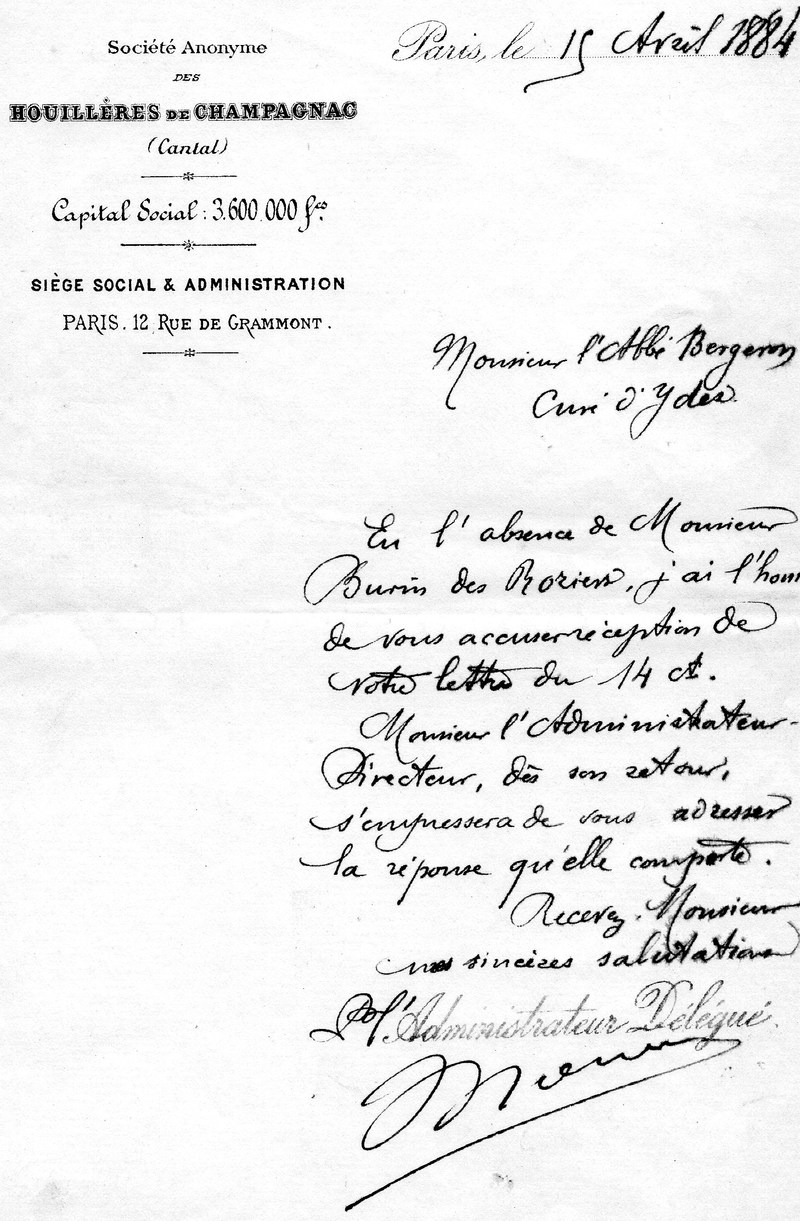 Société Anonyme
DES
HOUILLÈRES DE CHAMPAGNAC
(Cantal)
Capital Social : 3.600.000 fcs
SIÈGE SOCIAL & ADMINISTRATION
PARIS. 12 RUE DE GRAMMONT.
Paris, le 15 Avril 1884
Monsieur l'Abbé Bergeron
Curé d'Ydes
En l'absence de Monsieur
Burin des Roziers, j'ai l'hon
de vous accuser réception de
votre lettre du 14 ct.
Monsieur l'Administrateur-
Directeur, dès son retour,
s'empressera de vous adresser
la réponse qu'elle comporte.
Recevez, Monsieur
mes sincères salutations
Pr l'Administrateur Délégué.